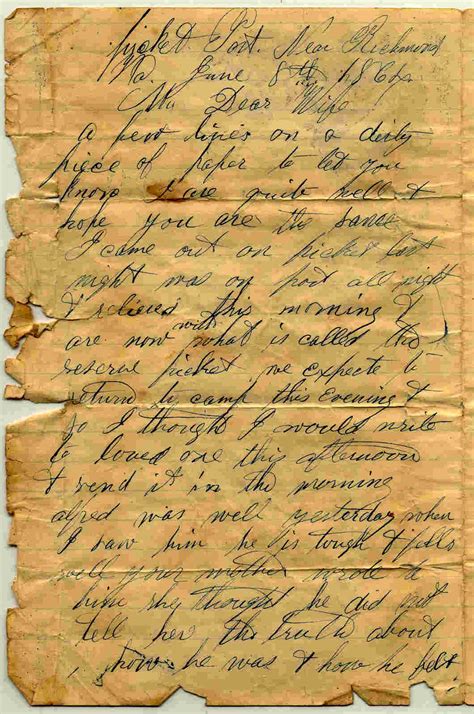 picket Post. Near Richmond
Va. June 8th 186
My Dear Wife
a few lines on a dirty
piece of paper to let you
know I are quite well &
hope you are the same
I came out on picket last
night was on post all night
& relieved this morning &
are now with what is called the
reserve picket we expecte to
return to camp this evening &
so I thought I would write
to loved one this afternoon
& send it in the morning
alfred was well yesterday when
I saw him he is tough & feels
well your mother wrote to
him she thought he did not
tell her the truth about
how he was & how he felt